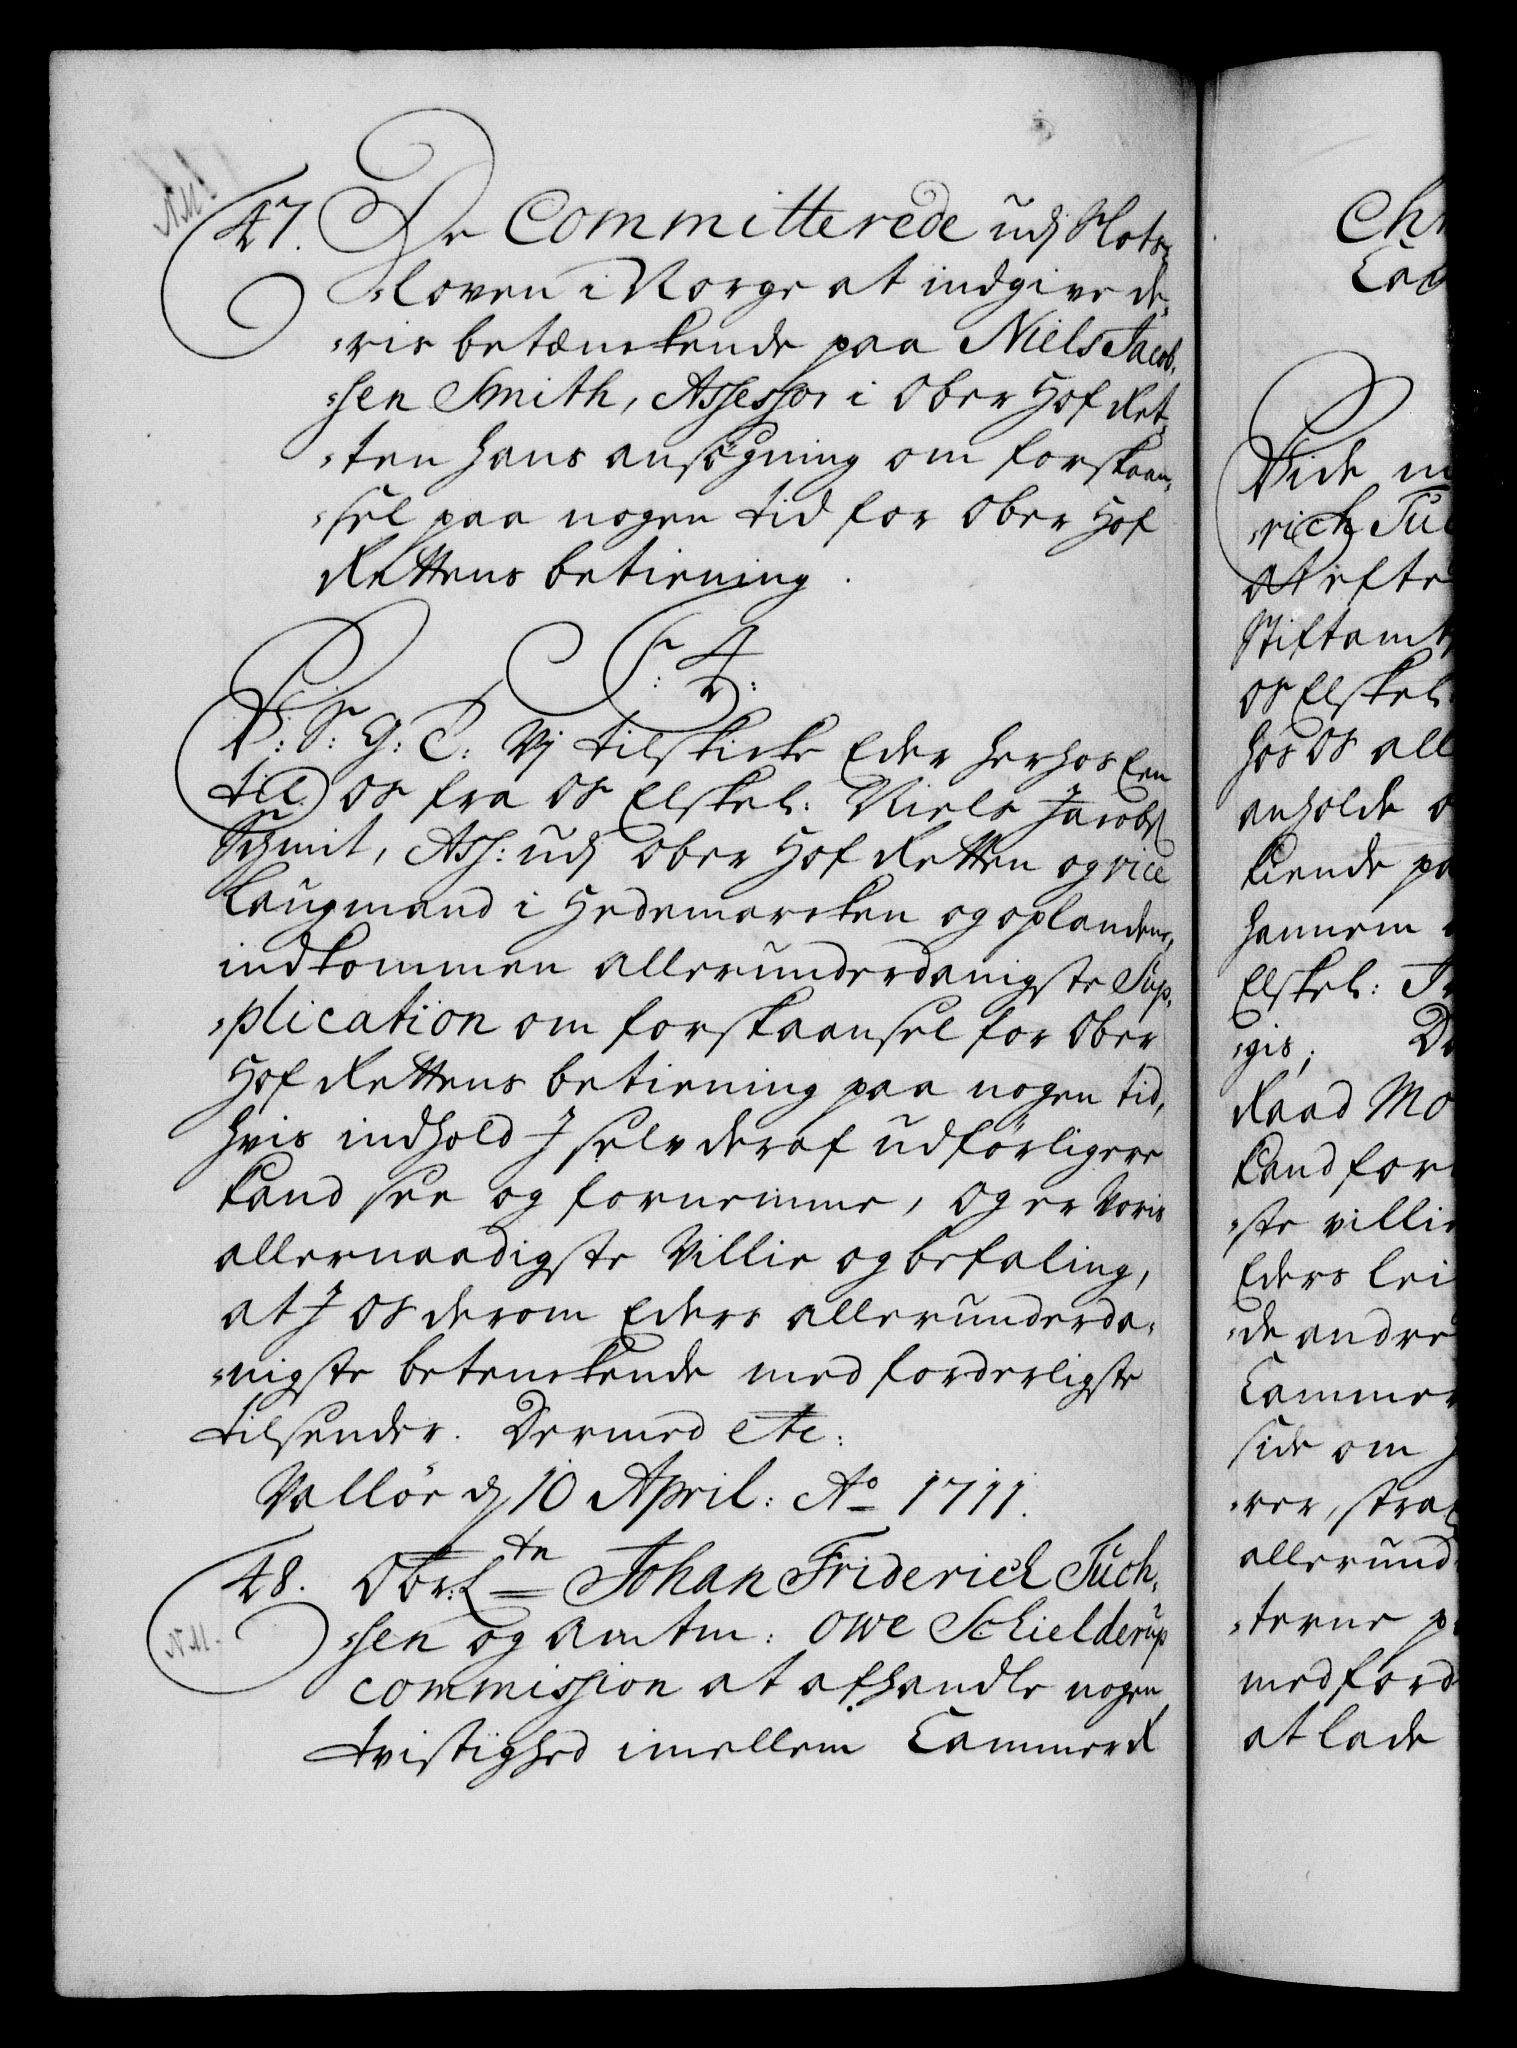 47. De Committerede udj Slots-
-Loven i Norge at indgive de-
-ris betænckende paa Niels Jacob-
-sen Smith, Assessor i Ober Hof Ret-
-ten hans ansøgning om forskaan-
-sel paa nogen tid for Ober Hof
Rettens betiening.
F: 4:
V: S: G: T: Vj tilskicke Eder herhos Een
till Os fra Os Elskel: Niels Jacobs:
Schmit, Ass: udj Ober Hof Retten og vice
Laugmand i Hedemarcken og oplandene,
indkommen allerunderdanigste Sup-
-plication om forskaansel for Ober
Hof Rettens betiening paa nogen tid,
hvis indhold I selv deraf udførligere
kand see og fornemme, Og er Voris
allernaadigste Villie og befaling,
at I Os derom Eders allerunderda-
-nigste betenckende med forderligste
tilsender. Dermed etc:
Walløe dj 10 April: Ao 1711.
48. Obr: Ltn Johan Friderich Tuch-
-sen og Amtm: Owe Schielderup
commission at afhandle nogen
tvistighed imellem Cammer R
Chr
Cam
Vide
-rich Tuc
at efte
Stiftamt
Os Elskel
hos Os all
anholde o
kiende pa
hannem
Elskel: Fr
-gis;
Raad Mo
kand for
-ste villie
Eders lei
-de andre
Cammer
side om
-rer, strax
allerund
-terne p
med ford
at lade